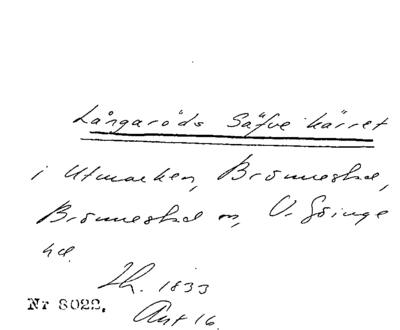 Långaröds Säfve kärret
i Utmarken, Brönnestad,
Brönnestad sn, V. Göinge
hd.
Lh. 1833
Nr 8022.
Akt 16.